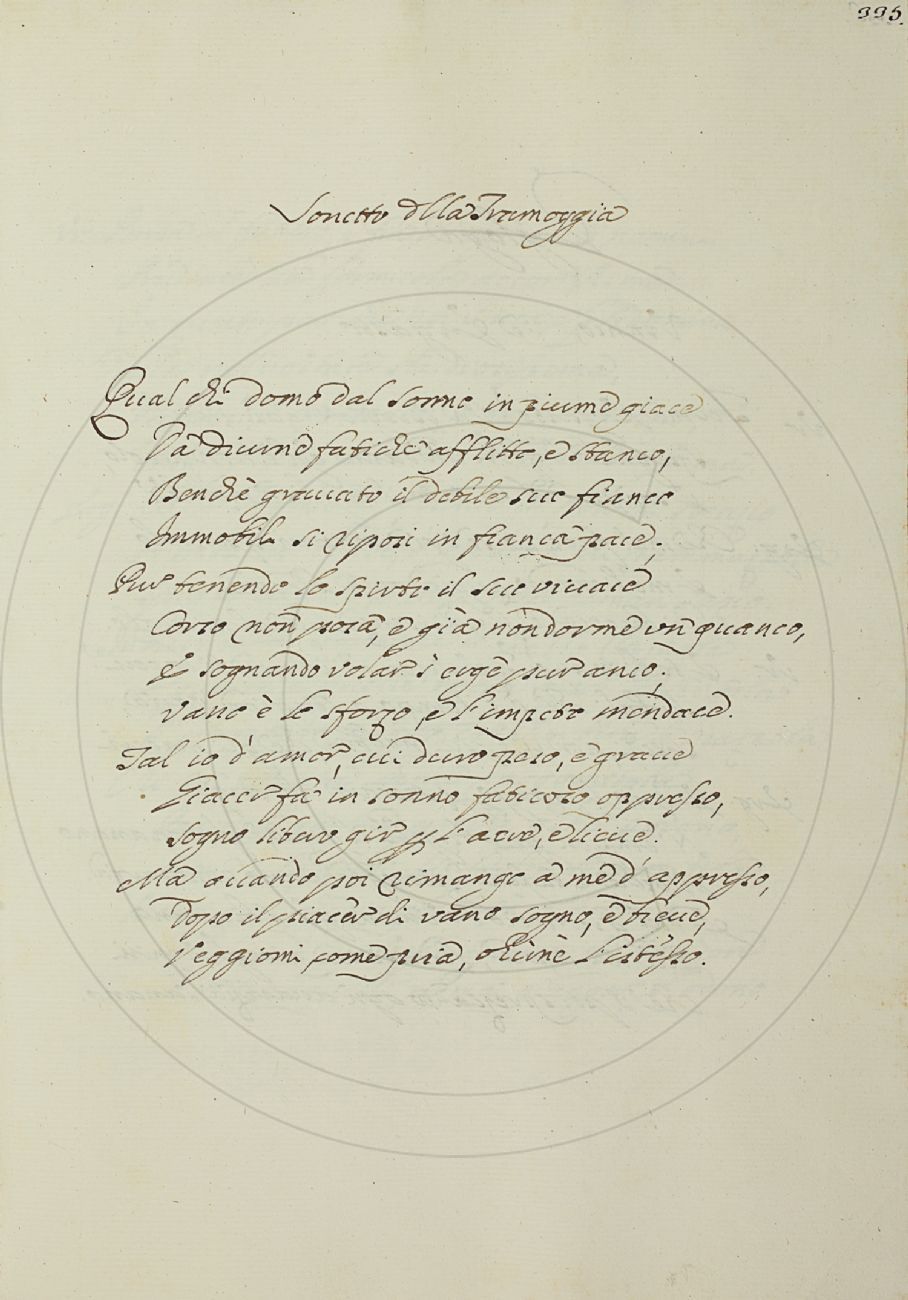 335
Sonetto della Tramoggia
Qual chi domo dal sonno in piume giace
Da diurne fatiche afflitto, e stanco,
Benchè gravato il debile suo fianco
Immobile si riposi in franca pace;
Pur tenendo lo spirto il suo vivace
Corso non posa, e già non dorme unquanco,
E sognando volar s'erge pur anco;
Vano è lo sforzo, e l'impeto mendace.
Tal io d'amor, cui duro peso, e grave
Giacer fa in sonno faticoso oppresso,
Sogno libero gir per l'aere, e lieve.
Ma quando poi rimango a me d'appresso,
Dopo il piacer di vano sogno, e breve,
Veggiomi come pria, ohimè l'istesso.